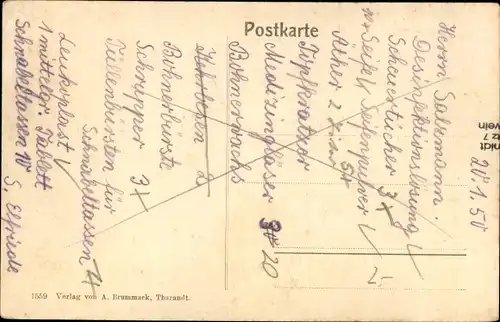 Postkarte
Herrn Salzmann.
Desinfektionslösung
Scheuertücher 3x
Seife Seifenpulver
Äther 2
Topfkratzer 5x
Medizingläser 20
Bohnerwachs
Bohnerbürste
Schrupper 3x
Tüllenbürsten für
Schnabeltassen 4
Leukoplast
1 mittelgr. Tablett
Schnabeltassen 10
S. Elfriede
20.1.50
1559 Verlag von A. Brummack, Tharandt.